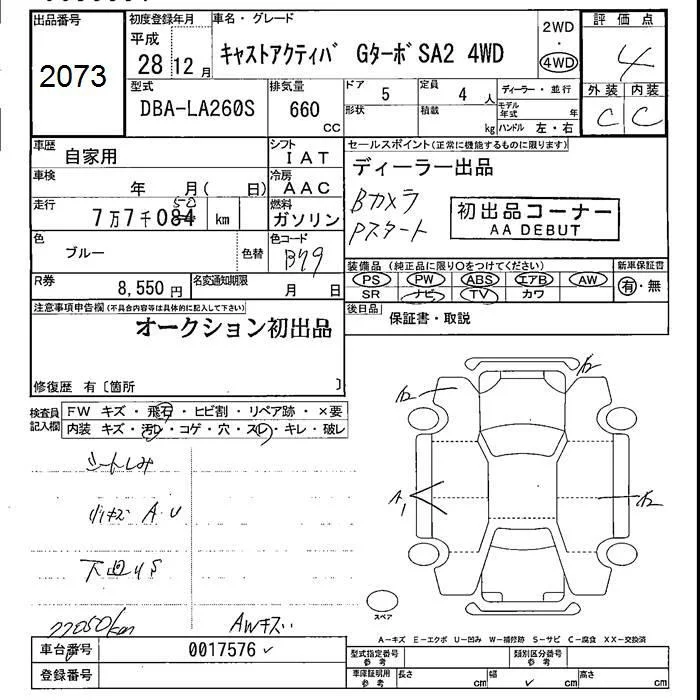 出品番号
2073
初度登録年月
平成
28 12 月
車名・グレード
キャストアクティバ GターボSA2 4WD
2WD
4WD
評価点
4
外装 内装
C C
型式
DBA-LA260S
排気量
660
cc
ドア 5
形状
定員 4 人
積載 kg
ディーラー・並行
モデル年式 年
ハンドル 左・右
車歴 自家用
シフト
IAT
車検 年 月( 日)
冷房
AAC
走行 7万7千084 km
50
燃料
ガソリン
色 ブルー
色替
色コード
B79
R券 8,550 円
名変通知期限 月 日
セールスポイント(正常に機能するものに限ります)
ディーラー出品
Bカメラ
Pスタート
初出品コーナー
AA DEBUT
装備品(純正品に限り○をつけてください)
PS PW ABS エアB AW
SR ナビ TV カワ
新車保証書
有・無
後日品 保証書・取説
注意事項申告欄(不具合内容等は具体的に記入して下さい)
オークション初出品
修復歴 有〔箇所 〕
検査員記入欄
FW キズ・飛石・ヒビ割・リペア跡・×要
内装 キズ・汚レ・コゲ・穴・スレ・キレ・破レ
シートしみ
小キズ A.U
下回りS
77050km
AWキズ
A2
A2
A1
A2
スペア
A-キズ E-エクボ U-凹み W-補修跡 S-サビ C-腐食 XX-交換済
車台番号 0017576
登録番号
型式指定番号
参考
類別区分番号
参考
車庫証明用
参考
長さ cm
幅 cm
高さ cm